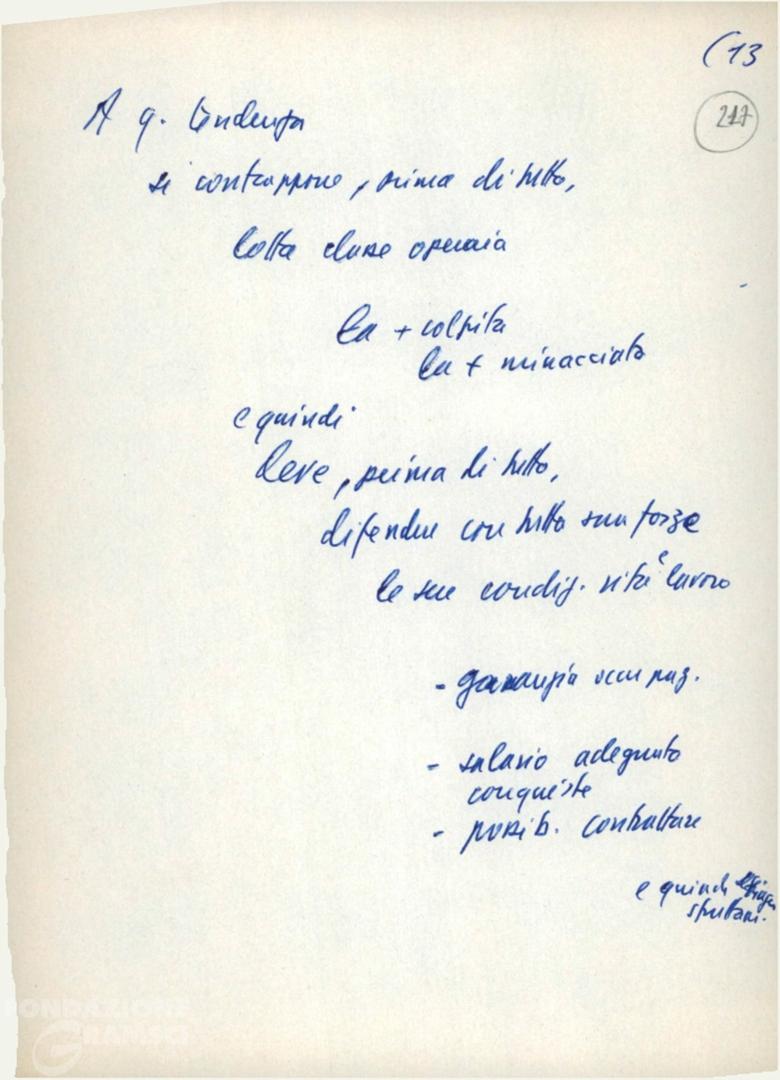 (13
217
A q. tendenza
si contrappone, prima di tutto,
lotta classe operaia
la + colpita
la + minacciata
e quindi
deve, prima di tutto,
difendere con tutta sua forza
le sue condiz. vita e lavoro
- garanzia occupaz.
- salario adeguato
conquiste
- possib. contrattare
e quindi
sfruttam.
FONDAZIONE
GRAMSCI